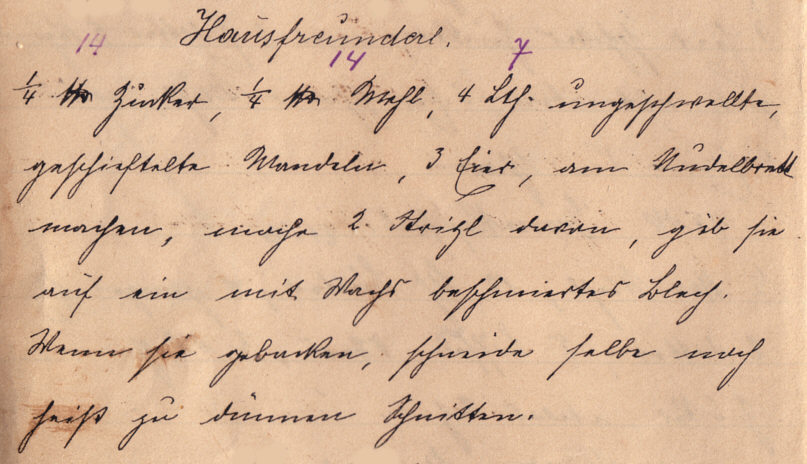 Hausfreunderl.
14 14 7
1/4 ℔ Zucker, 1/4 ℔ Mehl, 4 Lth. ungeschwellte,
geschieftelte Mandeln, 3 Eier, am Nudelbrett
machen, mache 2 Strizl davon, gib sie
auf ein mit Wachs beschmiertes Blech.
Wenn sie gebacken, schneide selbe noch
heiß zu dünnen Schnitten.